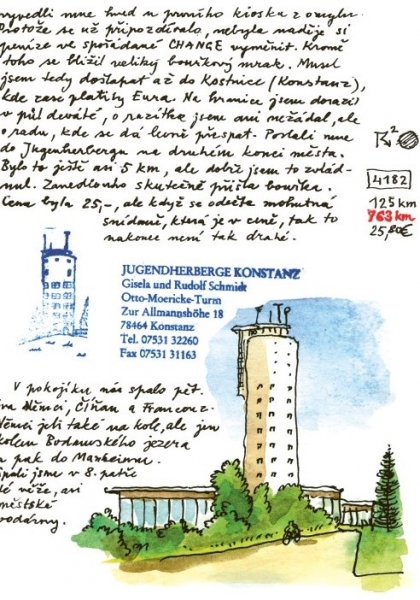 vyvedli mne hned u prvního kiosku z omylu.
Protože se už připozdívalo, nebyla naděje si
peníze ve spořádané CHANGE vyměnit. Kromě
toho se blížil veliký bouřkový mrak. Musel
jsem tedy došlapat až do Kostnice (Konstanz),
kde zase platily Eura. Na hranice jsem dorazil
v půl deváté, o razítko jsem ani nežádal, ale
o radu, kde se dá levně přespat. Poslali mne
do Jugenherbergu na druhém konci města.
Bylo to ještě asi 5 km, ale dobře jsem to zvlád-
nul. Zanedlouho skutečně přišla bouřka.
Cena byla 25,-, ale když se odečte mohutná
snídaně, která je v ceně, tak to
nakonec není tak drahé.
4182
125 km
763 km
25,80€
JUGENDHERBERGE KONSTANZ
Gisela und Rudolf Schmidt
Otto-Moericke-Turm
Zur Allmannshöhe 18
78464 Konstanz
Tel. 07531 32260
Fax 07531 31163
V pokojíku nás spalo pět.
Němci, Číňan a Francouz.
Němci jeli také na kole, ale jen
kolem Bodamského jezera
a pak do Manheimu.
spali jsme v 8. patře
té věže, asi
městské
vodárny.